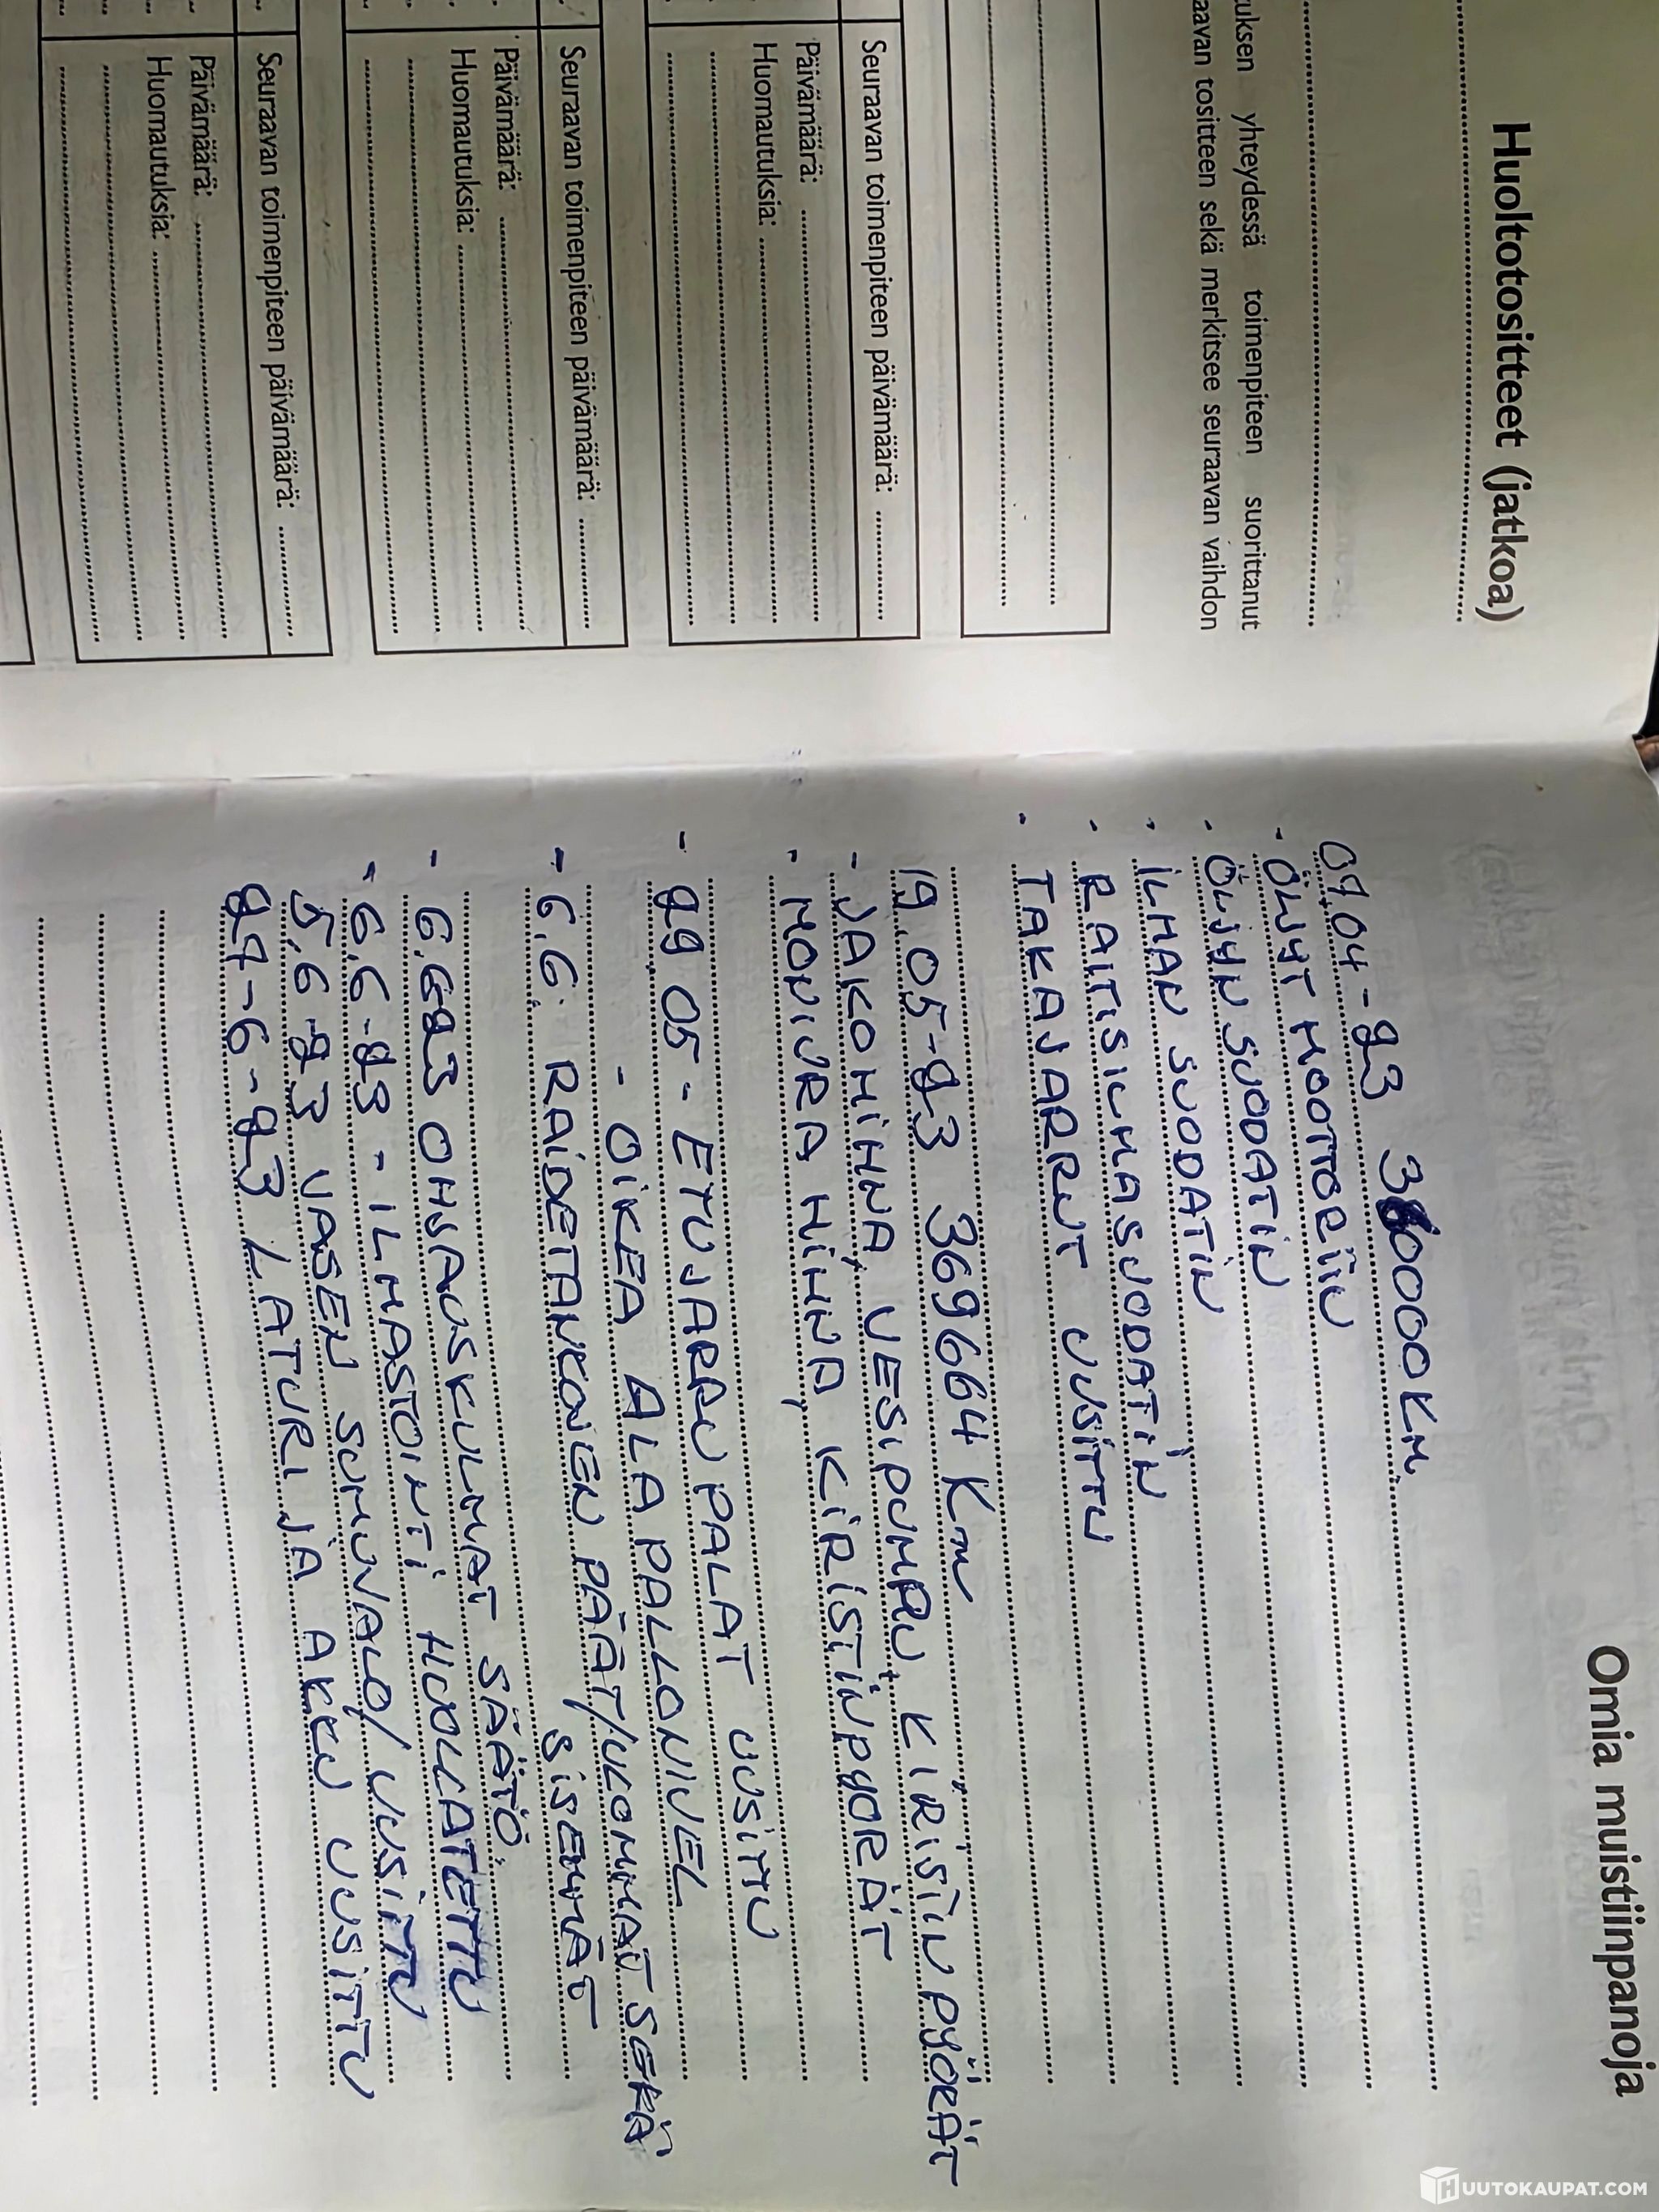 Huoltotositteet (jatkoa)
uksen yhteydessä toimenpiteen suorittanut
aavan tositteen sekä merkitsee seuraavan vaihdon
Seuraavan toimenpiteen päivämäärä: ............
Päivämäärä: ............
Huomautuksia: ............
Seuraavan toimenpiteen päivämäärä: ............
Päivämäärä: ............
Huomautuksia: ............
Seuraavan toimenpiteen päivämäärä: ............
Päivämäärä: ............
Huomautuksia: ............
Omia muistiinpanoja
07.04-23 360000 KM
- ÖLJYT MOOTTORIIN
- ÖLJYN SUODATIN
- ILMAN SUODATIN
- RAITISILMASUODATIN
- TAKAJARRUT UUSITTU
19.05-23 369664 Km
- JAKOHIHNA, VESIPUMPPU, KIRISTINPYÖRÄT
- MONIURA HIHNA, KIRISTINPYÖRÄT
- 29 05 - ETUJARRUPALAT UUSITTU
- OIKEA ALAPALLONIVEL
- 6.6. RAIDETANKOJEN PÄÄT/ULOMMAT SEKÄ
SISEMMÄT
- 6.6.23 OHJAUSKULMAT SÄÄTÖ.
- 6.6.23 - ILMASTOINTI HUOLLATETTU
5.6.23 VASEN SUMUVALO/UUSITTU
27-6-23 LATURI JA AKKU UUSITTU
HUUTOKAUPAT.COM